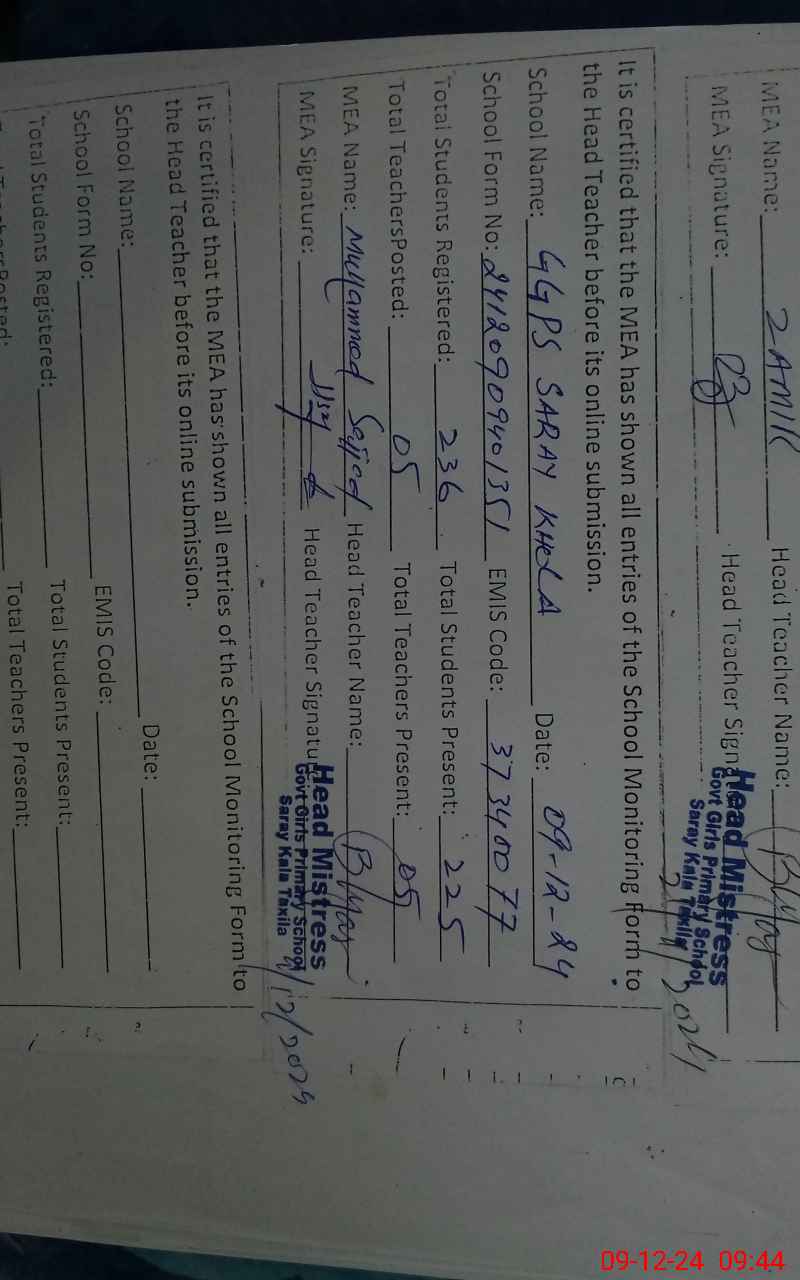 MEA Name: ZAMIR Head Teacher Name:
MEA Signature: Head Teacher Signa
Head Mistress
Govt Girls Primary School
Saray Kala Taxila
It is certified that the MEA has shown all entries of the School Monitoring Form to
the Head Teacher before its online submission.
School Name: GGPS SARAY KHOLA Date: 09-12-24
School Form No: 24120909401351 EMIS Code: 37340077
Total Students Registered: 236 Total Students Present: 225
Total TeachersPosted: 05 Total Teachers Present: 05
MEA Name: Muhammad Sajjad Head Teacher Name:
MEA Signature: Head Teacher Signatur
Head Mistress
Govt Girls Primary School
Saray Kala Taxila
9/12/2024
It is certified that the MEA has shown all entries of the School Monitoring Form to
the Head Teacher before its online submission.
School Name: Date:
School Form No: EMIS Code:
Total Students Registered: Total Students Present:
Total TeachersPosted: Total Teachers Present:
09-12-24 09:44